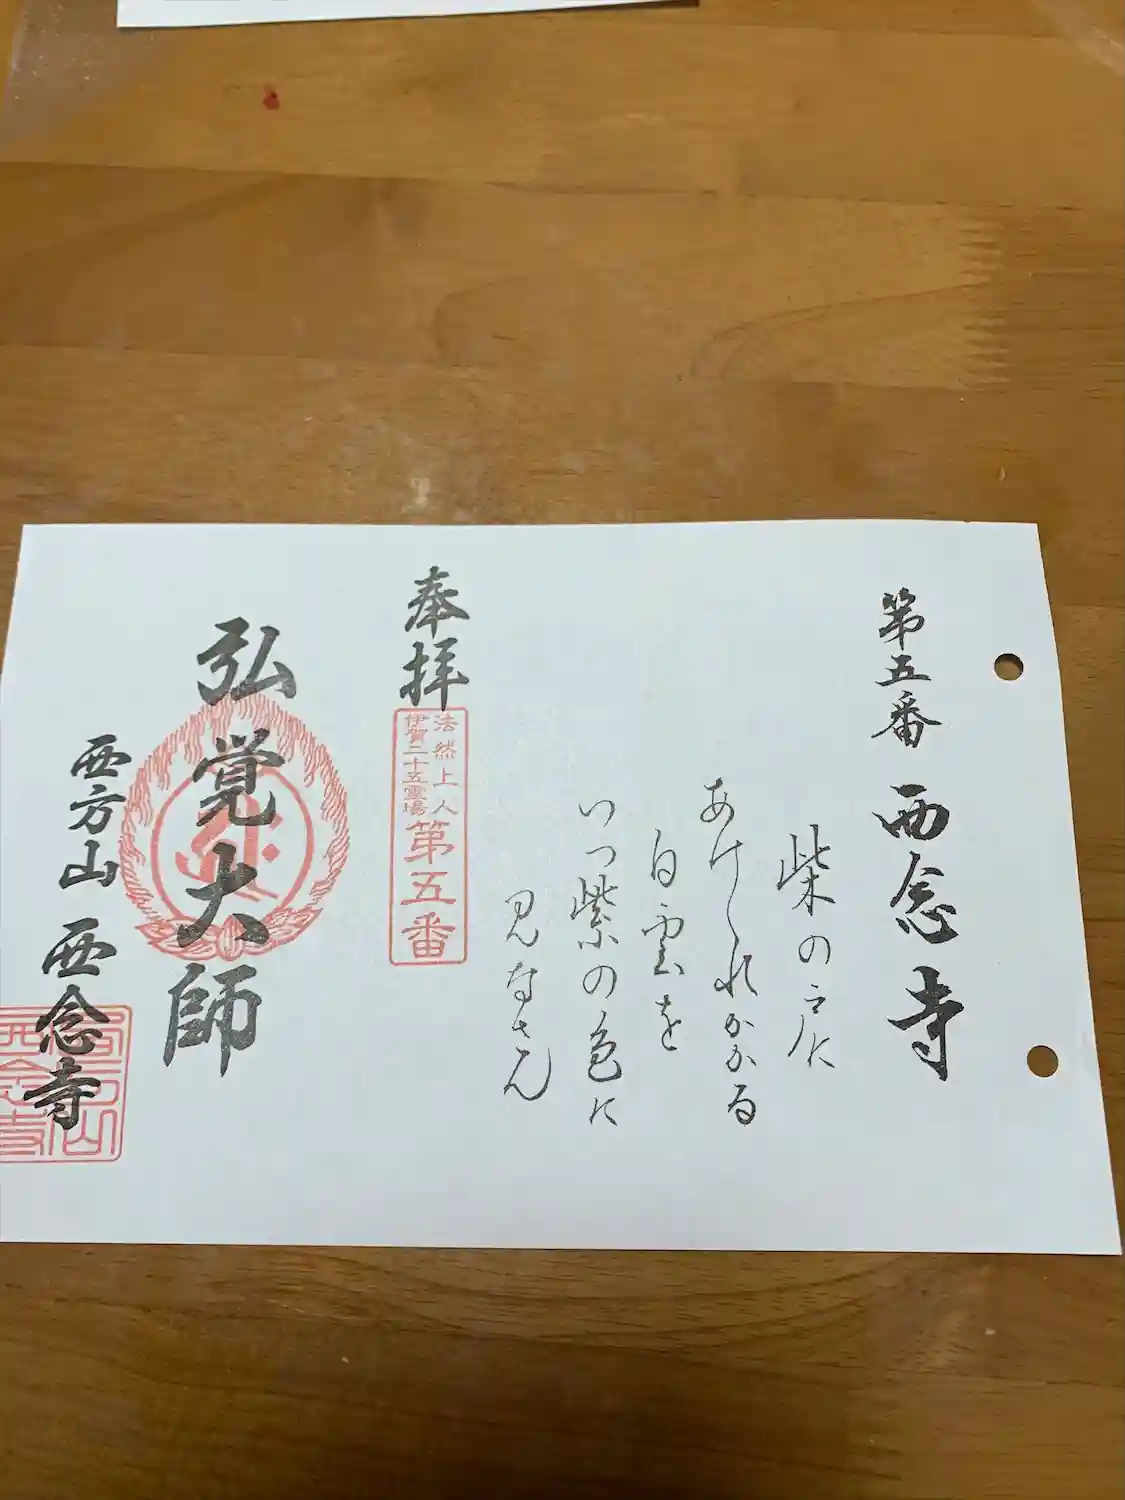 第五番 西念寺
柴の戸に
あけくれかかる
白雲を
いつ紫の色に
見なさん
奉拝
法然上人
伊賀二十五霊場
第五番
弘覚大師
西方山 西念寺
西方山
西念寺